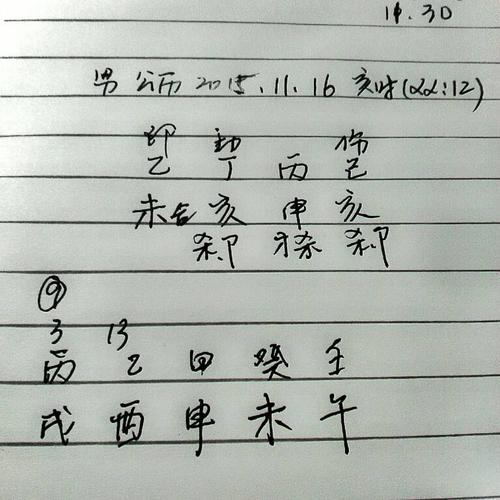 14.30
男 公历 2015.11.16 亥时(22:12)
印 劫 伤
乙 丁 丙 己
未 亥 申 亥
杀印 才杀 杀印
⑨
3 13
丙 乙 甲 癸 壬
戌 酉 申 未 午